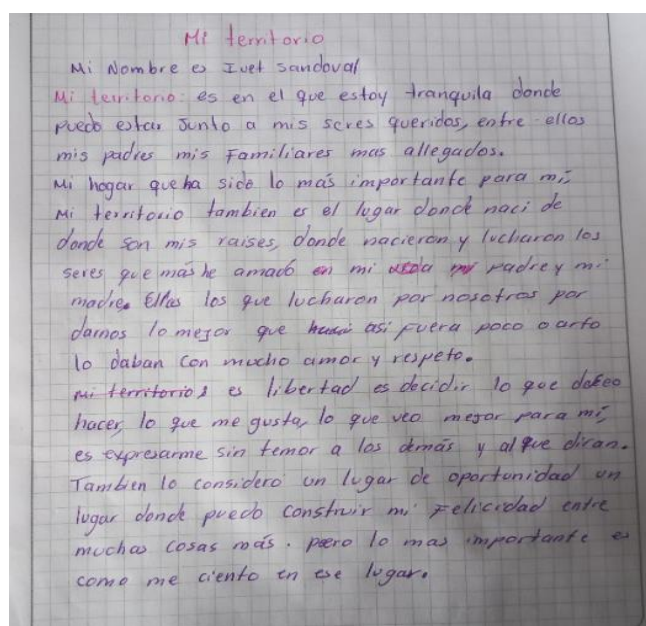 Mi territorio
Mi Nombre es Ivet Sandoval
Mi territorio: es en el que estoy tranquila donde
puedo estar Junto a mis seres queridos, entre ellos
mis padres mis Familiares mas allegados.
Mi hogar que ha sido lo más importante para mí,
Mi territorio tambien es el lugar donde naci de
donde son mis raises, donde nacieron y lucharon los
seres que más he amado en mi vida mi padre y mi
madre. Ellos los que lucharon por nosotros por
darnos lo mejor que asi fuera poco o arto
lo daban con mucho amor y respeto.
mi territorio es libertad es decidir lo que deseo
hacer, lo que me gusta, lo que veo mejor para mí,
es expresarme sin temor a los demás y al que diran.
Tambien lo considero un lugar de oportunidad un
lugar donde puedo construir mi Felicidad entre
muchas cosas más. pero lo mas importante es
como me ciento en ese lugar.